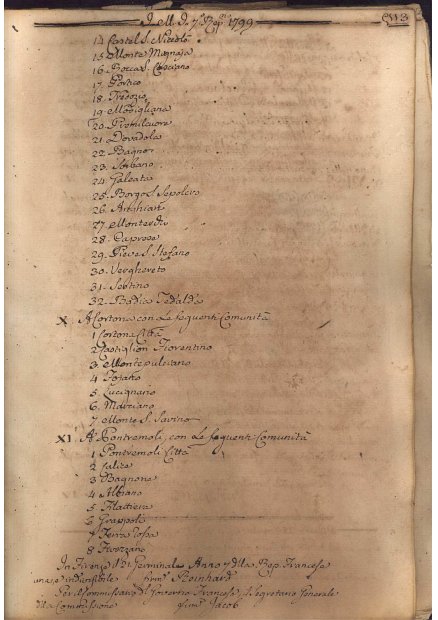 J. M. J. 7 Rep. 1799
14 Castel S. Niccolò
15 Monte Mignajo
16 Rocca S. Casciano
17 Portico
18 Tredozio
19 Modigliana
20 Premilcuore
21 Dovadola
22 Bagno
23 Sorbano
24 Galeata
25 Borgo S. Sepolcro
26
27 Monterchi
28 Caprese
29 Pieve S. Stefano
30 Verghereto
31 Sestino
32 Badia Tedalda
X. A Cortona con Le seguenti Comunità
1 Cortona Città
2 Castiglion Fiorentino
3 Montepulciano
4 Fojano
5 Lucignano
6 Marciano
7 Monte S. Savino
XI. A Pontremoli con Le seguenti Comunità
1 Pontremoli Città
2 Calice
3 Bagnone
4 Albiano
5 Filattiera
6 Groppoli
7 Terra rossa
8
In Firenze li 21 Germinale Anno 7 della Rep. Francese
una e indivisibile firm. Reinhard
Per il Commissario del Governo Francese, il Segretario Generale
della Commissione firm. Jacob